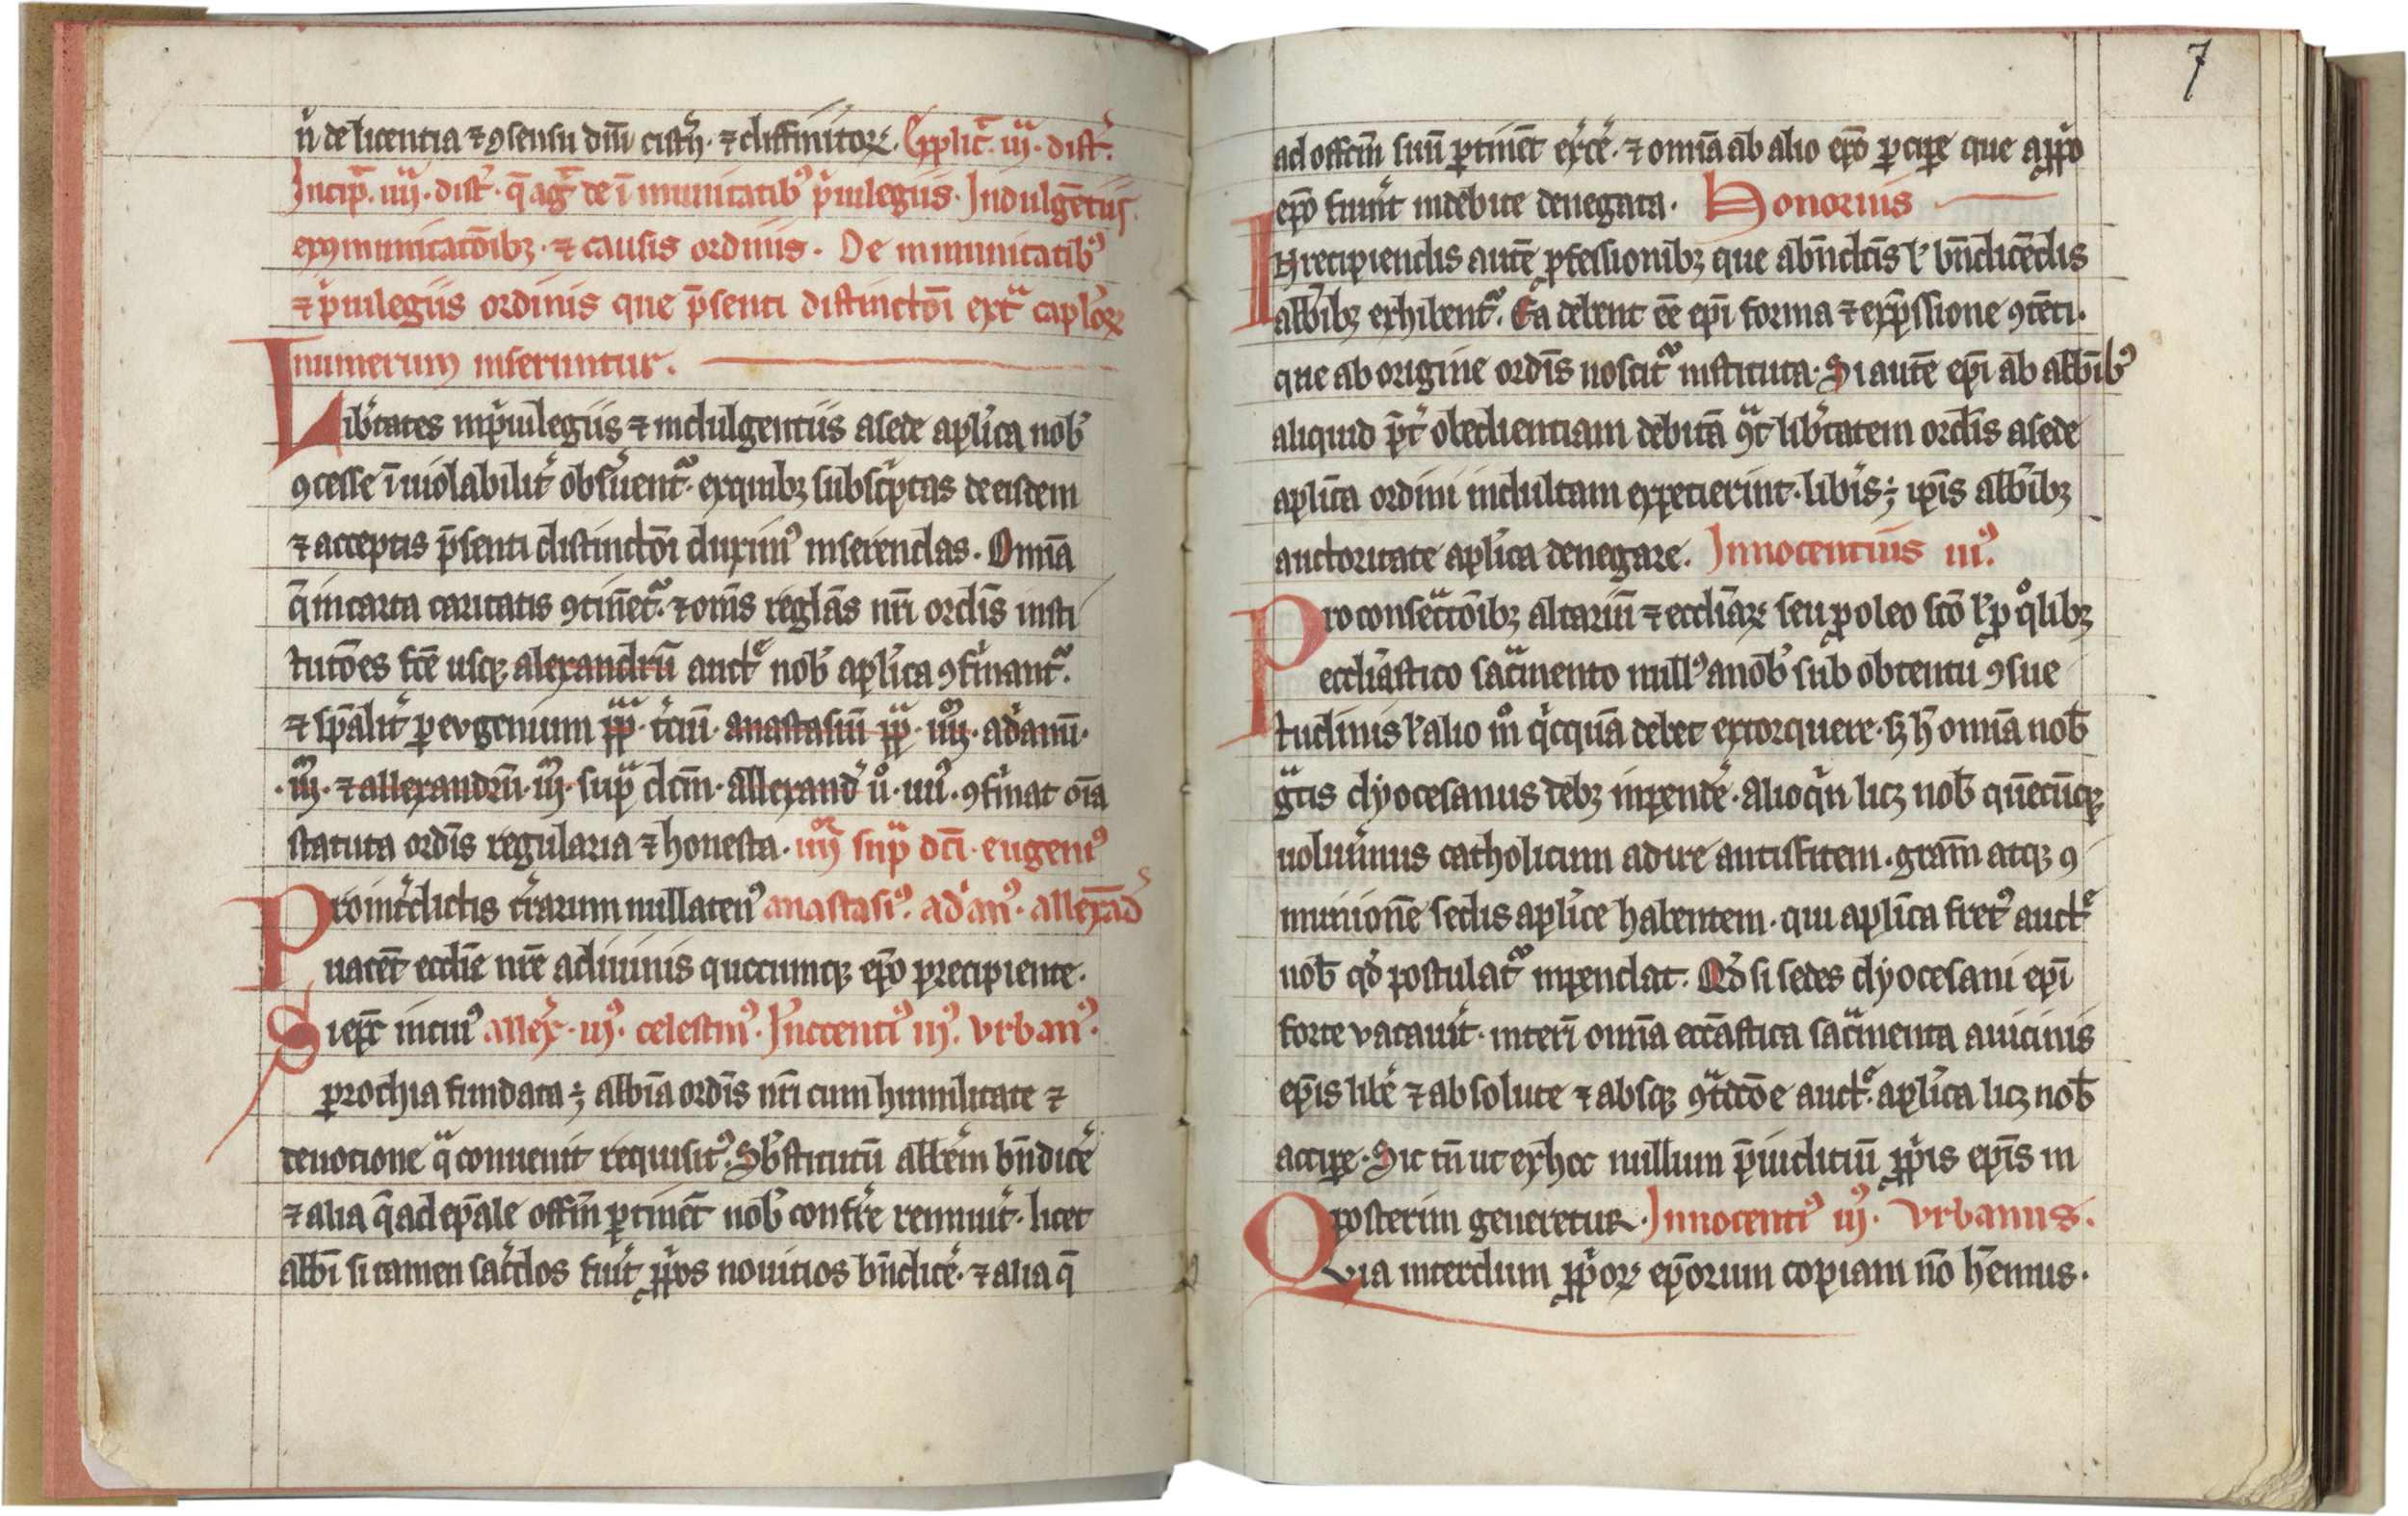 n̄ de licentia ⁊ ꝯsensu dn̄i cist̄ꝭ. ⁊ diffinitoꝝ. Explic̄. iij. dist̄.
Incip̄. iiij. dist̄. q̄ aḡ de īmunitatibꝰ p̓uilegiis. Indulgētiis
exꝯmunicatōibꝫ. ⁊ causis ordinis. De inmunitatibꝰ
⁊ p̓uilegiis ordinis que p̄senti distinctōi ext̄ caplōꝝ
numerum inseruntur.
Lib̓tates in p̓uilegiis ⁊ indulgentiis a sede apl̓ica nob̓
ꝯcesse īuiolabilit̓ obs̓uent᷑. ex quibꝫ subsc̓ptas de eisdem
⁊ acceptis p̄senti distinctōi duximꝰ inserendas. Omīa
q̄ in carta caritatis ꝯtinēt᷑. ⁊ om̄s reglās nr̄i ordīs insti
tutōes fcē usqꝫ alexandrū auctᵉ nob̓ apl̓ica ꝯfirmant᷑.
⁊ sp̄alit̓ ꝑ eugenium pp̄. t̓ciū. anastasiū pp̄. iiij. adrianū.
iiij. ⁊ allexandrū. iij. sup̄ dc̄m. allexand̓ ū. iiii. ꝯfirmat oīa
statuta ordīs regularia ⁊ honesta. iiij sup̄ dc̄i. eugeniꝰ
Pro int̓dictis t̓rarum nullatenꝰ anastasiꝰ. ad̓anꝰ. allexād̓
uacēt eccl̄ie nr̄e a diuinis quocumqꝫ ep̄o precipiente.
Si ep̄c in cuiꝰ allex̓. iijꝰ. celestinꝰ. Innocentiꝰ iijꝰ. vrbanꝰ.
ꝑrochia fundata ÷ abb̄ia ordīs nr̄i cum humilitate ⁊
deuotione q̄ conuenit requisitꝰ. Sb̓stitutū abb̄em bn̄dic̓e
⁊ alia q̄ ad ep̄ale offm̄ ꝑtinēt nob̓ conf̓re rennuit̓. licet
abb̄i si tamen sac̓dos fuit̓ p̓pos nouitios bn̄dic̓e. ⁊ alia q̄
7
ad offm̄ suū ꝑtinēt ex̓c̓e. ⁊ omīa ab alio ep̄o ꝑcipe que a p̓po
ep̄o fuint̓ indebite denegata. Honorius
In recipiendis autē ꝓfessionibꝫ que a bn̄dictīs l̓ bn̄dicēdis
abb̄ibꝫ exhibent᷑. Ea debent eē ep̄i forma ⁊ exp̄ssione ꝯtēti.
que ab origine ordīs noscit᷑ instituta. Si autē ep̄i ab abb̄ibꝰ
aliquid p̄t̓ obedientiam debitā ꝯt̄ lib̓tatem ordīs a sede
apl̓ica ordini indultam expetierint. lib̓īs ÷ ip̄is abb̄ibꝫ
auctoritate apl̓ica denegare. Innocentius iijꝰ.
Pro consecᷓtōibꝫ altariū ⁊ eccl̄iaꝝ seu ꝓ oleo scō l̓ ꝓ qͦlibꝫ
eccl̄iastico sacᷓmento nullꝰ a nob̓ sub obtentu ꝯsue
tudinis l̓ alio mͦ q̓cquā debet extorquere. sꝫ h̓ omīa nob̄
gᷓtis dyocesanus debꝫ inpende̓. alioq̓n licꝫ nob̄ quēcūqꝫ
uoluim̓us catholicum adire antistitem. gram̄ atqꝫ ꝯ
munionē sedis apl̓ice habentem. qui apl̓ica fretꝰ auctᵉ
nob̄ qd̓ postulat᷑ inpendat. Qd̓ si sedes dyocesani ep̄i
forte vacauit̓. interī omīa eccl̄astica sacᷓmenta a uicinis
ep̄is lib̓e ⁊ absolute ⁊ absqꝫ ꝯtᷓdc̄ōe auctᵉ. apl̓ica licꝫ nob̄
accipe. Sic tn̄ ut ex hoc nullum p̄iudiciū p̓pis ep̄is in
posterim generetur. Innocentiꝰ iijꝰ. vrbanus.
Quia interdum p̓poꝝ ep̄orum copiam nō h̄emus.